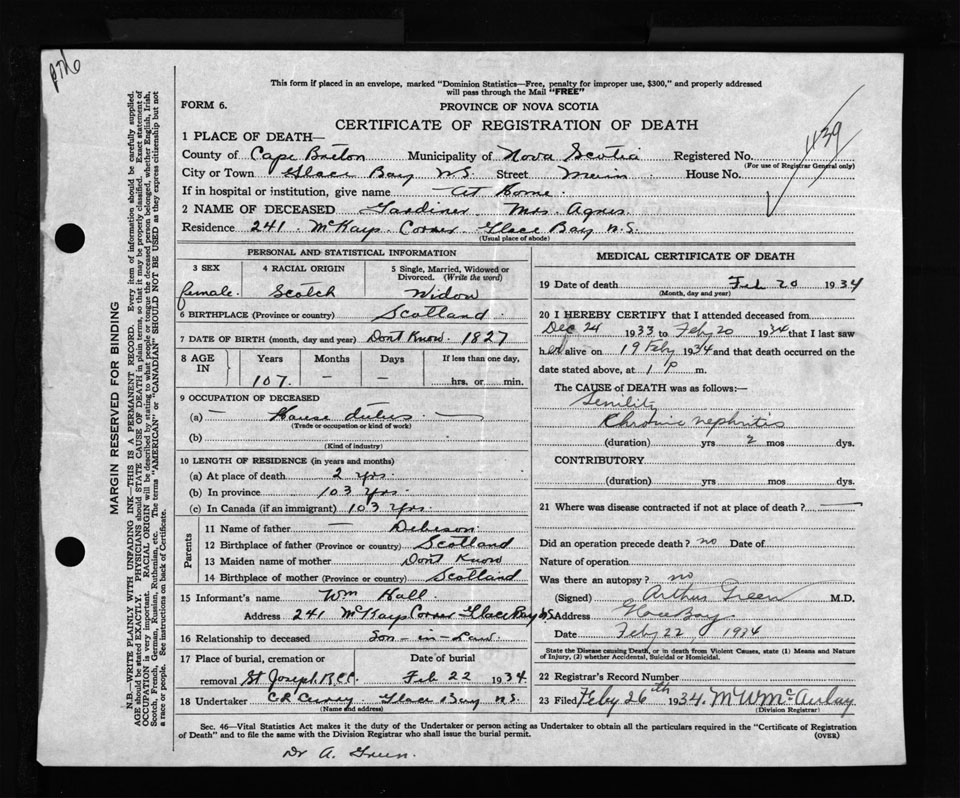 pth6
This form if placed in an envelope, marked "Dominion Statistics—Free, penalty for improper use, $300," and properly addressed
will pass through the Mail "FREE"
FORM 6.
PROVINCE OF NOVA SCOTIA
CERTIFICATE OF REGISTRATION OF DEATH
439
1 PLACE OF DEATH—
County of Cape Breton Municipality of Nova Scotia Registered No.
(For use of Registrar General only)
City or Town Glace Bay N.S. Street Main House No.
If in hospital or institution, give name At Home.
2 NAME OF DECEASED Gardiner Mrs. Agnes.
Residence 241 McKays Corner Glace Bay N.S.
(Usual place of abode)
PERSONAL AND STATISTICAL INFORMATION
3 SEX 4 RACIAL ORIGIN 5 Single, Married, Widowed or Divorced. (Write the word)
female. Scotch Widow
6 BIRTHPLACE (Province or country) Scotland
7 DATE OF BIRTH (month, day and year) Dont Know. 1827
8 AGE IN Years Months Days If less than one day,
107. — — ....hrs. or ....min.
9 OCCUPATION OF DECEASED
(a) — House duties —
(Trade or occupation or kind of work)
(b)
(Kind of industry)
10 LENGTH OF RESIDENCE (in years and months)
(a) At place of death 2 yrs.
(b) In province 103 yrs.
(c) In Canada (if an immigrant) 103 yrs.
Parents
11 Name of father —
12 Birthplace of father (Province or country) Scotland
13 Maiden name of mother Dont Know
14 Birthplace of mother (Province or country) Scotland
15 Informant's name Wm Hall
Address 241 McKays Corner Glace Bay N.S.
16 Relationship to deceased Son-in-Law
17 Place of burial, cremation or Date of burial
removal St Joseph R.C.C. Feb 22 1934.
18 Undertaker C.R. Glace Bay N.S.
MEDICAL CERTIFICATE OF DEATH
19 Date of death Feb 20 1934
(Month, day and year)
20 I HEREBY CERTIFY that I attended deceased from
Dec 24 1933 to Feby 20 1934 that I last saw
her alive on 19 Feby 1934 and that death occurred on the
date stated above, at 1 P m.
The CAUSE of DEATH was as follows:—
Senility
Chronic nephritis
(duration) yrs 2 mos dys.
CONTRIBUTORY
(duration) yrs mos dys.
21 Where was disease contracted if not at place of death? —
Did an operation precede death? no Date of
Nature of operation
Was there an autopsy? no
(Signed) Arthur Green M.D.
Address Glace Bay
Date Feby 22, 1934
State the Disease causing Death, or in death from Violent Causes, state (1) Means and Nature
of Injury, (2) whether Accidental, Suicidal or Homicidal.
22 Registrar's Record Number
23 Filed Feby 26th 1934. M W McAulay
(Division Registrar)
Sec. 46—Vital Statistics Act makes it the duty of the Undertaker or person acting as Undertaker to obtain all the particulars required in the "Certificate of Registration
of Death" and to file the same with the Division Registrar who shall issue the burial permit.
(OVER)
Dr A. Green.
MARGIN RESERVED FOR BINDING
N.B.—WRITE PLAINLY WITH UNFADING INK—THIS IS A PERMANENT RECORD. Every item of information should be carefully supplied.
AGE should be stated EXACTLY. PHYSICIANS should STATE CAUSE OF DEATH in plain terms, so that it may be properly classified. Exact statement of
OCCUPATION is very important. RACIAL ORIGIN will be described by stating to what people or tongue the deceased person belonged, whether English, Irish,
Scotch, French, German, Russian, Ruthenian, etc. The terms "AMERICAN" or "CANADIAN" SHOULD NOT BE USED as they express citizenship but not
a race or people. See instructions on back of Certificate.